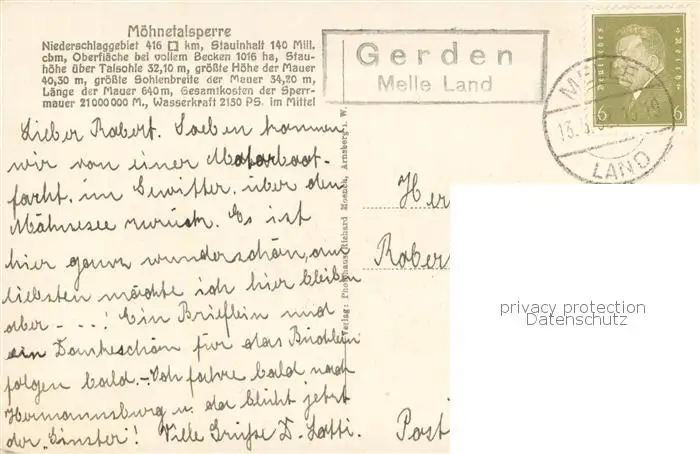 Möhnetalsperre
Niederschlaggebiet 416 □ km, Stauinhalt 140 Mill.
cbm, Oberfläche bei vollem Becken 1016 ha, Stau-
höhe über Talsohle 32,10 m, größte Höhe der Mauer
40,30 m, größte Sohlenbreite der Mauer 34,20 m,
Länge der Mauer 640 m, Gesamtkosten der Sperr-
mauer 21 000 000 M., Wasserkraft 2150 PS. im Mittel
Gerden
Melle Land
Deutsches Reich
6 6
MELLE
LAND
Lieber Robert. Soeben kommen
wir von einer Motorboot-
fahrt im Gewitter über den
Möhnesee zurück. Es ist
hier ganz wunderschön, am
liebsten möchte ich hier bleiben
aber - - ..! Ein Brieflein und
ein Dankeschön für das Büchlein
folgen bald. - Ich fahre bald nach
Hermannsburg u. da blüht jetzt
der "Ginster"! Viele Grüße D. Lotti.
Verlag: Photohaus Richard Mosnck, Arnsberg i. W.
Her
Rober
Post
privacy protection
Datenschutz